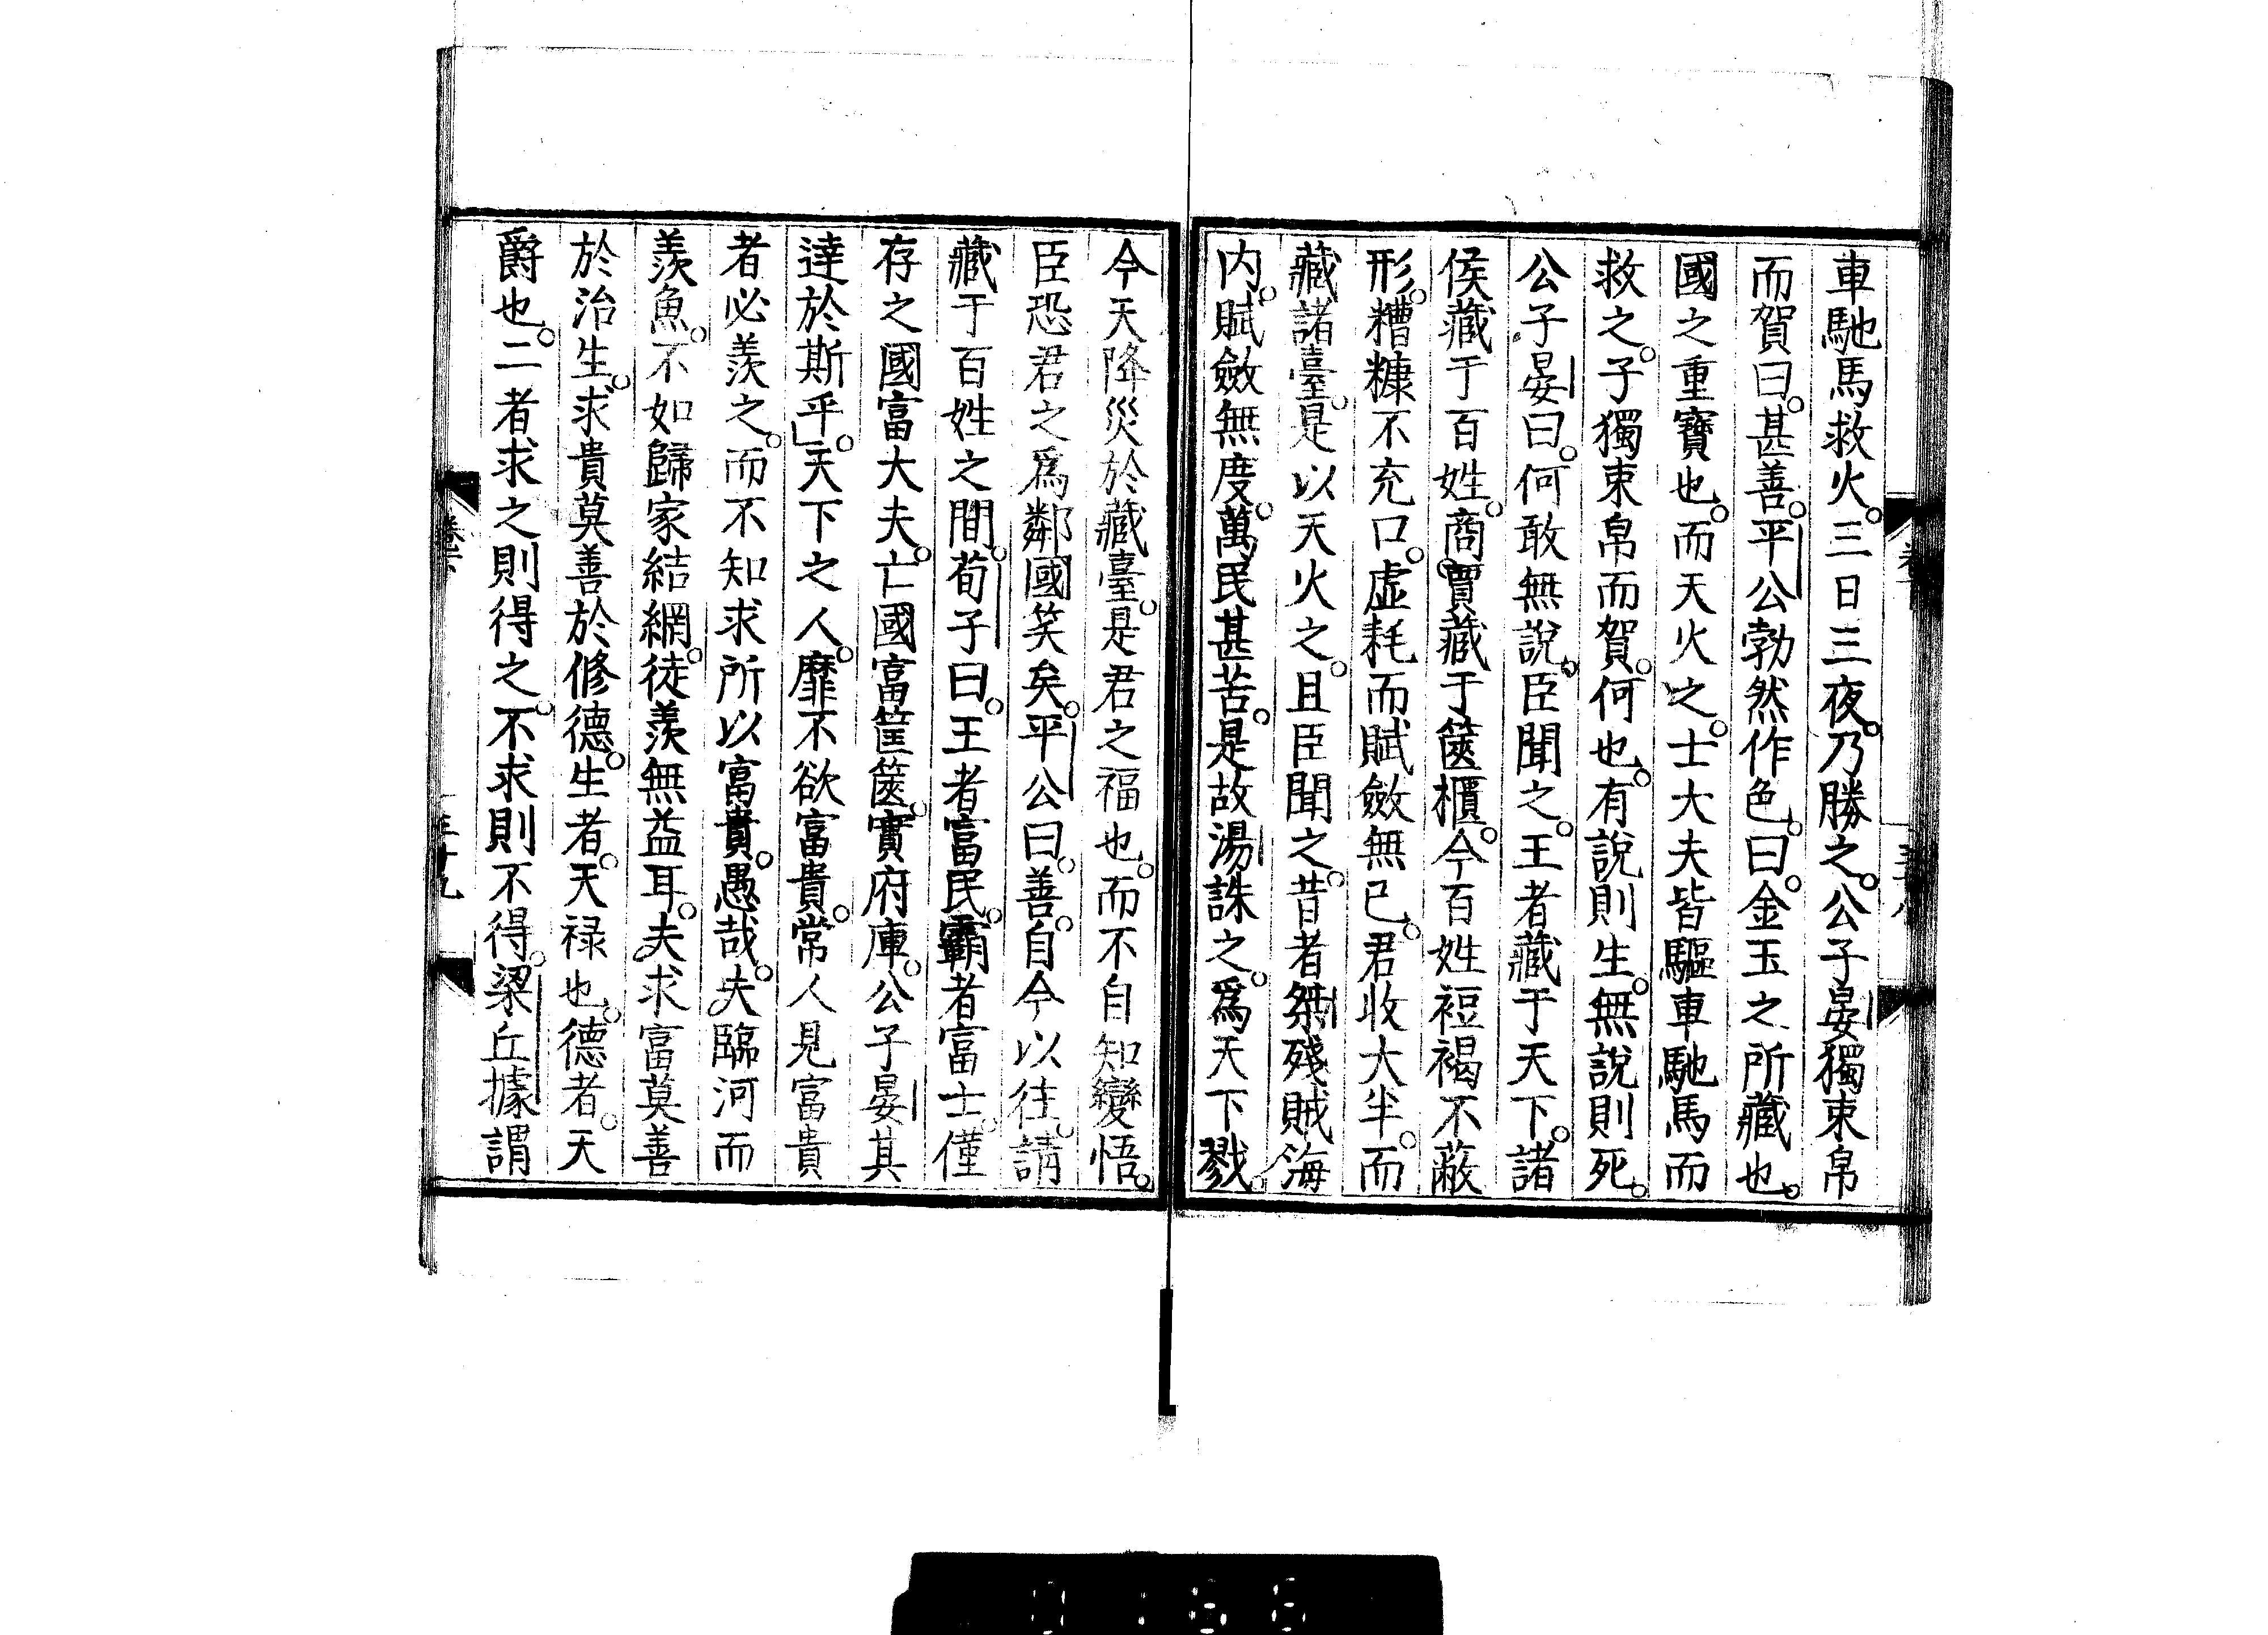 車馳馬救火。三日三夜。乃勝之。公子晏獨束帛
而賀曰。甚善。平公勃然作色。曰。金玉之所藏也。
國之重寶也。而天火之。士大夫皆驅車馳馬而
救之。子獨束帛而賀。何也。有說則生。無說則死。
公子晏曰。何敢無說。臣聞之。王者藏于天下。諸
侯藏于百姓。商。賈藏于篋櫃。今百姓裋褐不蔽
形。糟糠不充口。虛耗而賦斂無已。君收大半。而
藏諸臺。是以天火之。且臣聞之。昔者桀殘賊海
内。賦斂無度。萬民甚苦。是故湯誅之。爲天下戮。
今天降災於藏臺。是君之福也。而不自知變悟。
臣恐君之爲鄰國笑矣。平公曰。善。自今以往。請
藏于百姓之間。荀子曰。王者富民。霸者富士。僅
存之國富大夫。亡國富筐篋。實府庫。公子晏其
達於斯乎。天下之人。靡不欲富貴。常人見富貴
者必羨之。而不知求所以富貴。愚哉。夫臨河而
羨魚。不如歸家結網。徒羨無益耳。夫求富莫善
於治生。求貴莫善於修德。生者。天禄也。德者。天
爵也。二者求之則得之。不求則不得。梁丘據謂